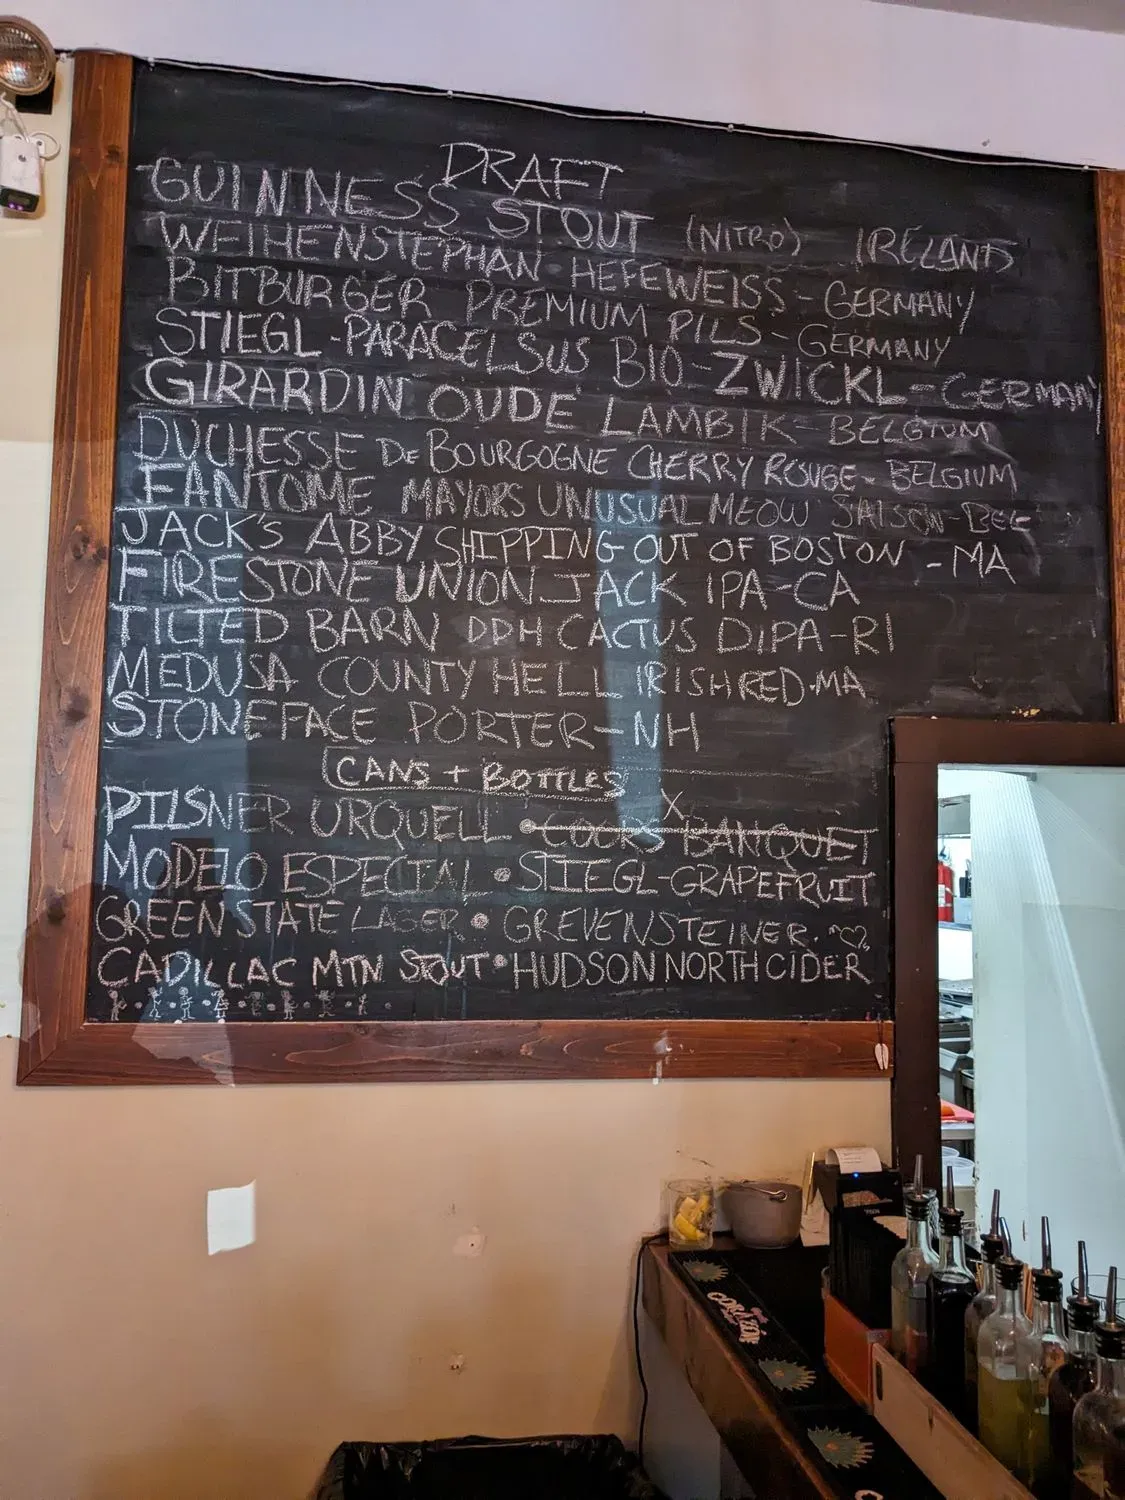 DRAFT
GUINNESS STOUT (NITRO) IRELAND
WEIHENSTEPHAN HEFEWEISS - GERMANY
BITBURGER PREMIUM PILS - GERMANY
STIEGL - PARACELSUS BIO - ZWICKL - GERMANY
GIRARDIN OUDE LAMBIK - BELGIUM
DUCHESSE DE BOURGOGNE CHERRY ROUGE - BELGIUM
FANTOME MAYORS UNUSUAL MEOW SAISON - BEL
JACK'S ABBY SHIPPING OUT OF BOSTON - MA
FIRESTONE UNION JACK IPA - CA
TILTED BARN DDH CACTUS DIPA - RI
MEDUSA COUNTY HELL IRISH RED - MA
STONEFACE PORTER - NH
CANS + BOTTLES
PILSNER URQUELL • COORS BANQUET X
MODELO ESPECIAL • STIEGL - GRAPEFRUIT
GREEN STATE LAGER • GREVENSTEINER
CADILLAC MTN STOUT • HUDSON NORTH CIDER
CORAZÓN